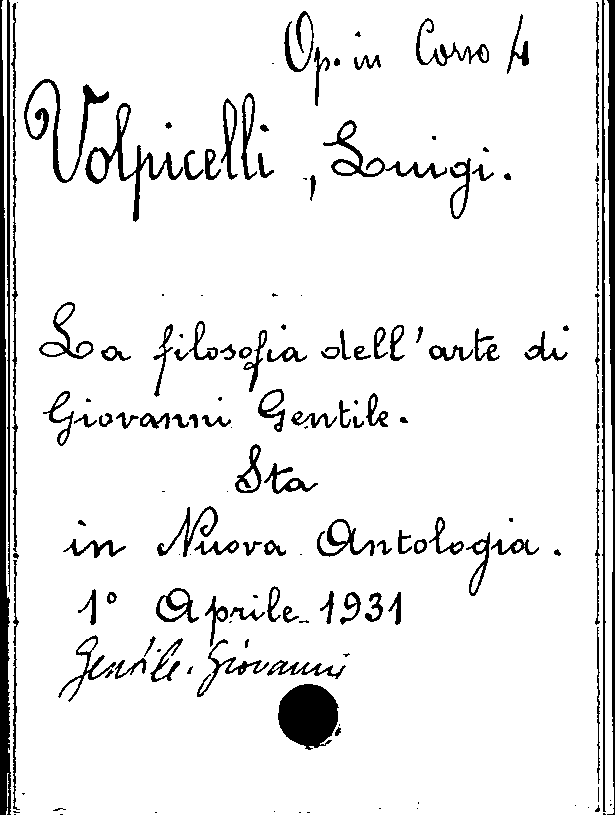 Op. in Corso 4
Volpicelli, Luigi.
La filosofia dell'arte di
Giovanni Gentile.
Sta
in Nuova Antologia.
1° Aprile 1931
Gentile. Giovanni